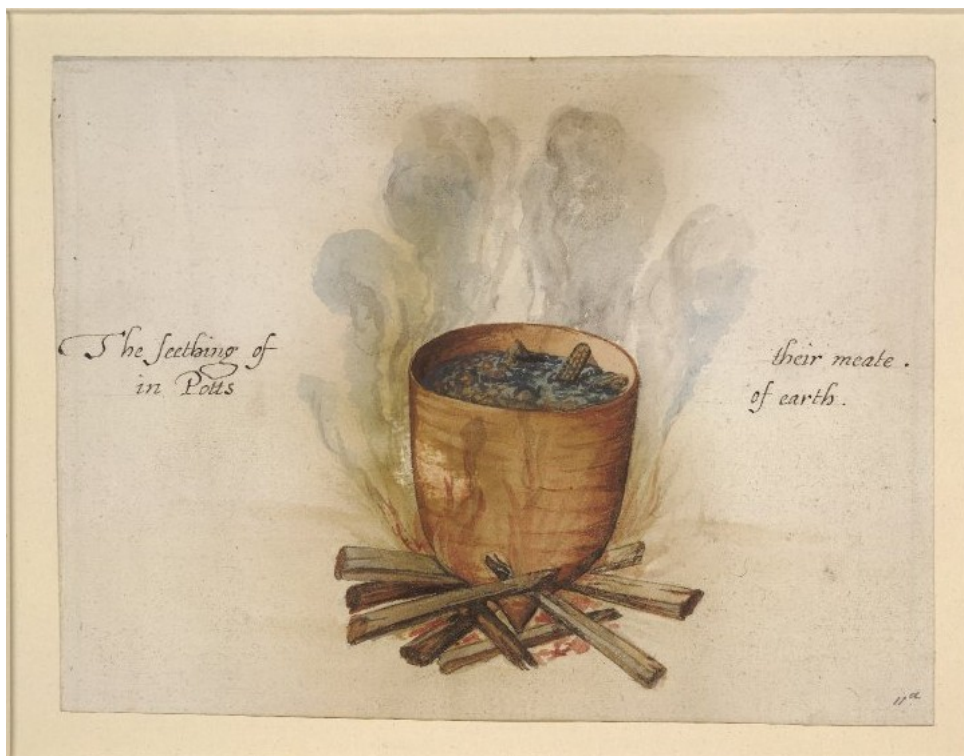 The seething of their meate.
in Potts of earth.
11a